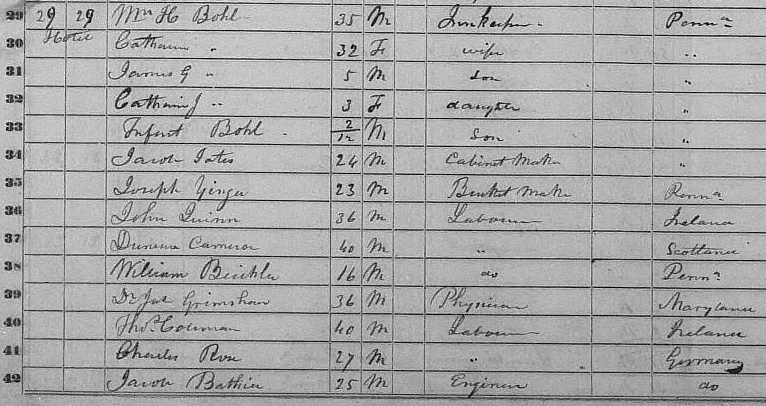 29 29 29 Wm H Bohl 35 M Innkeeper Pennª
30 Hotel Catharine " 32 F wife "
31 James G " 5 M son "
32 Catharine J " 3 F daughter "
33 Infant Bohl 2/12 M son "
34 Jacob 24 M Cabinet Maker "
35 Joseph 23 M Basket Maker Pennª
36 John Quinn 36 M Labourer Ireland
37 Cameron 40 M " Scotland
38 William 16 M do Pennª
39 Dr Jas Grimshaw 36 M Physician Maryland
40 Thos Coleman 40 M Labourer Ireland
41 Charles Rose 27 M " Germany
42 Jacob 25 M Engineer do